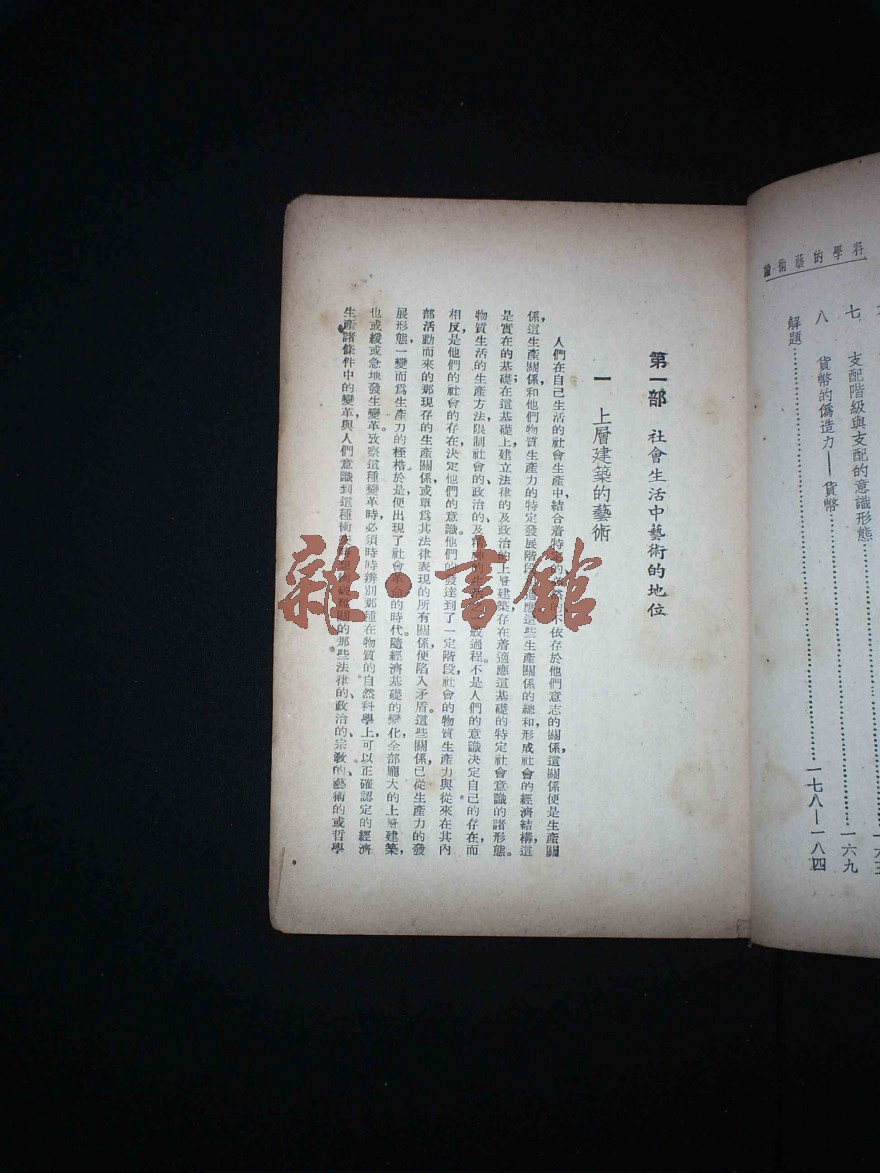 科學的藝術論
七 支配階級與支配的意識形態……一六九
八 貨幣的僞造力——貨幣
解題……一七八—一八四
第一部 社會生活中藝術的地位
一 上層建築的藝術
人們在自己生活的社會生產中,結合着特定的必然的不依存於他們意志的關係,這關係便是生產關
係,這生產關係和他們物質生產力的特定發展階段相適應這些生產關係的總和,形成社會的經濟結構,這
是實在的基礎;在這基礎上建立法律的及政治的上層建築存在着適應這基礎的特定社會意識的諸形態。
物質生活的生產方法,限制社會的、政治的、及精神的生活一般過程。不是人們的意識決定自己的存在,而
相反,是他們的社會的存在決定他們的意識。他們的發達到了一定階段,社會的物質生產力與從來在其內
部活動而來的那現存的生產關係,或單爲其法律表現的所有關係,便陷入矛盾。這些關係,已從生產力的發
展形態一變而爲生產力的桎梏。於是,便出現了社會革命的時代。隨經濟基礎的變化,全部龐大的上層建築,
也或緩或急地發生變革。攷察這種變革時,必須時時辨別那種在物質的自然科學上可以正確認定的經濟
生產諸條件中的變革,與人們意識到這種衝 的那些法律的、政治的、宗教的、藝術的或哲學
雜·書館